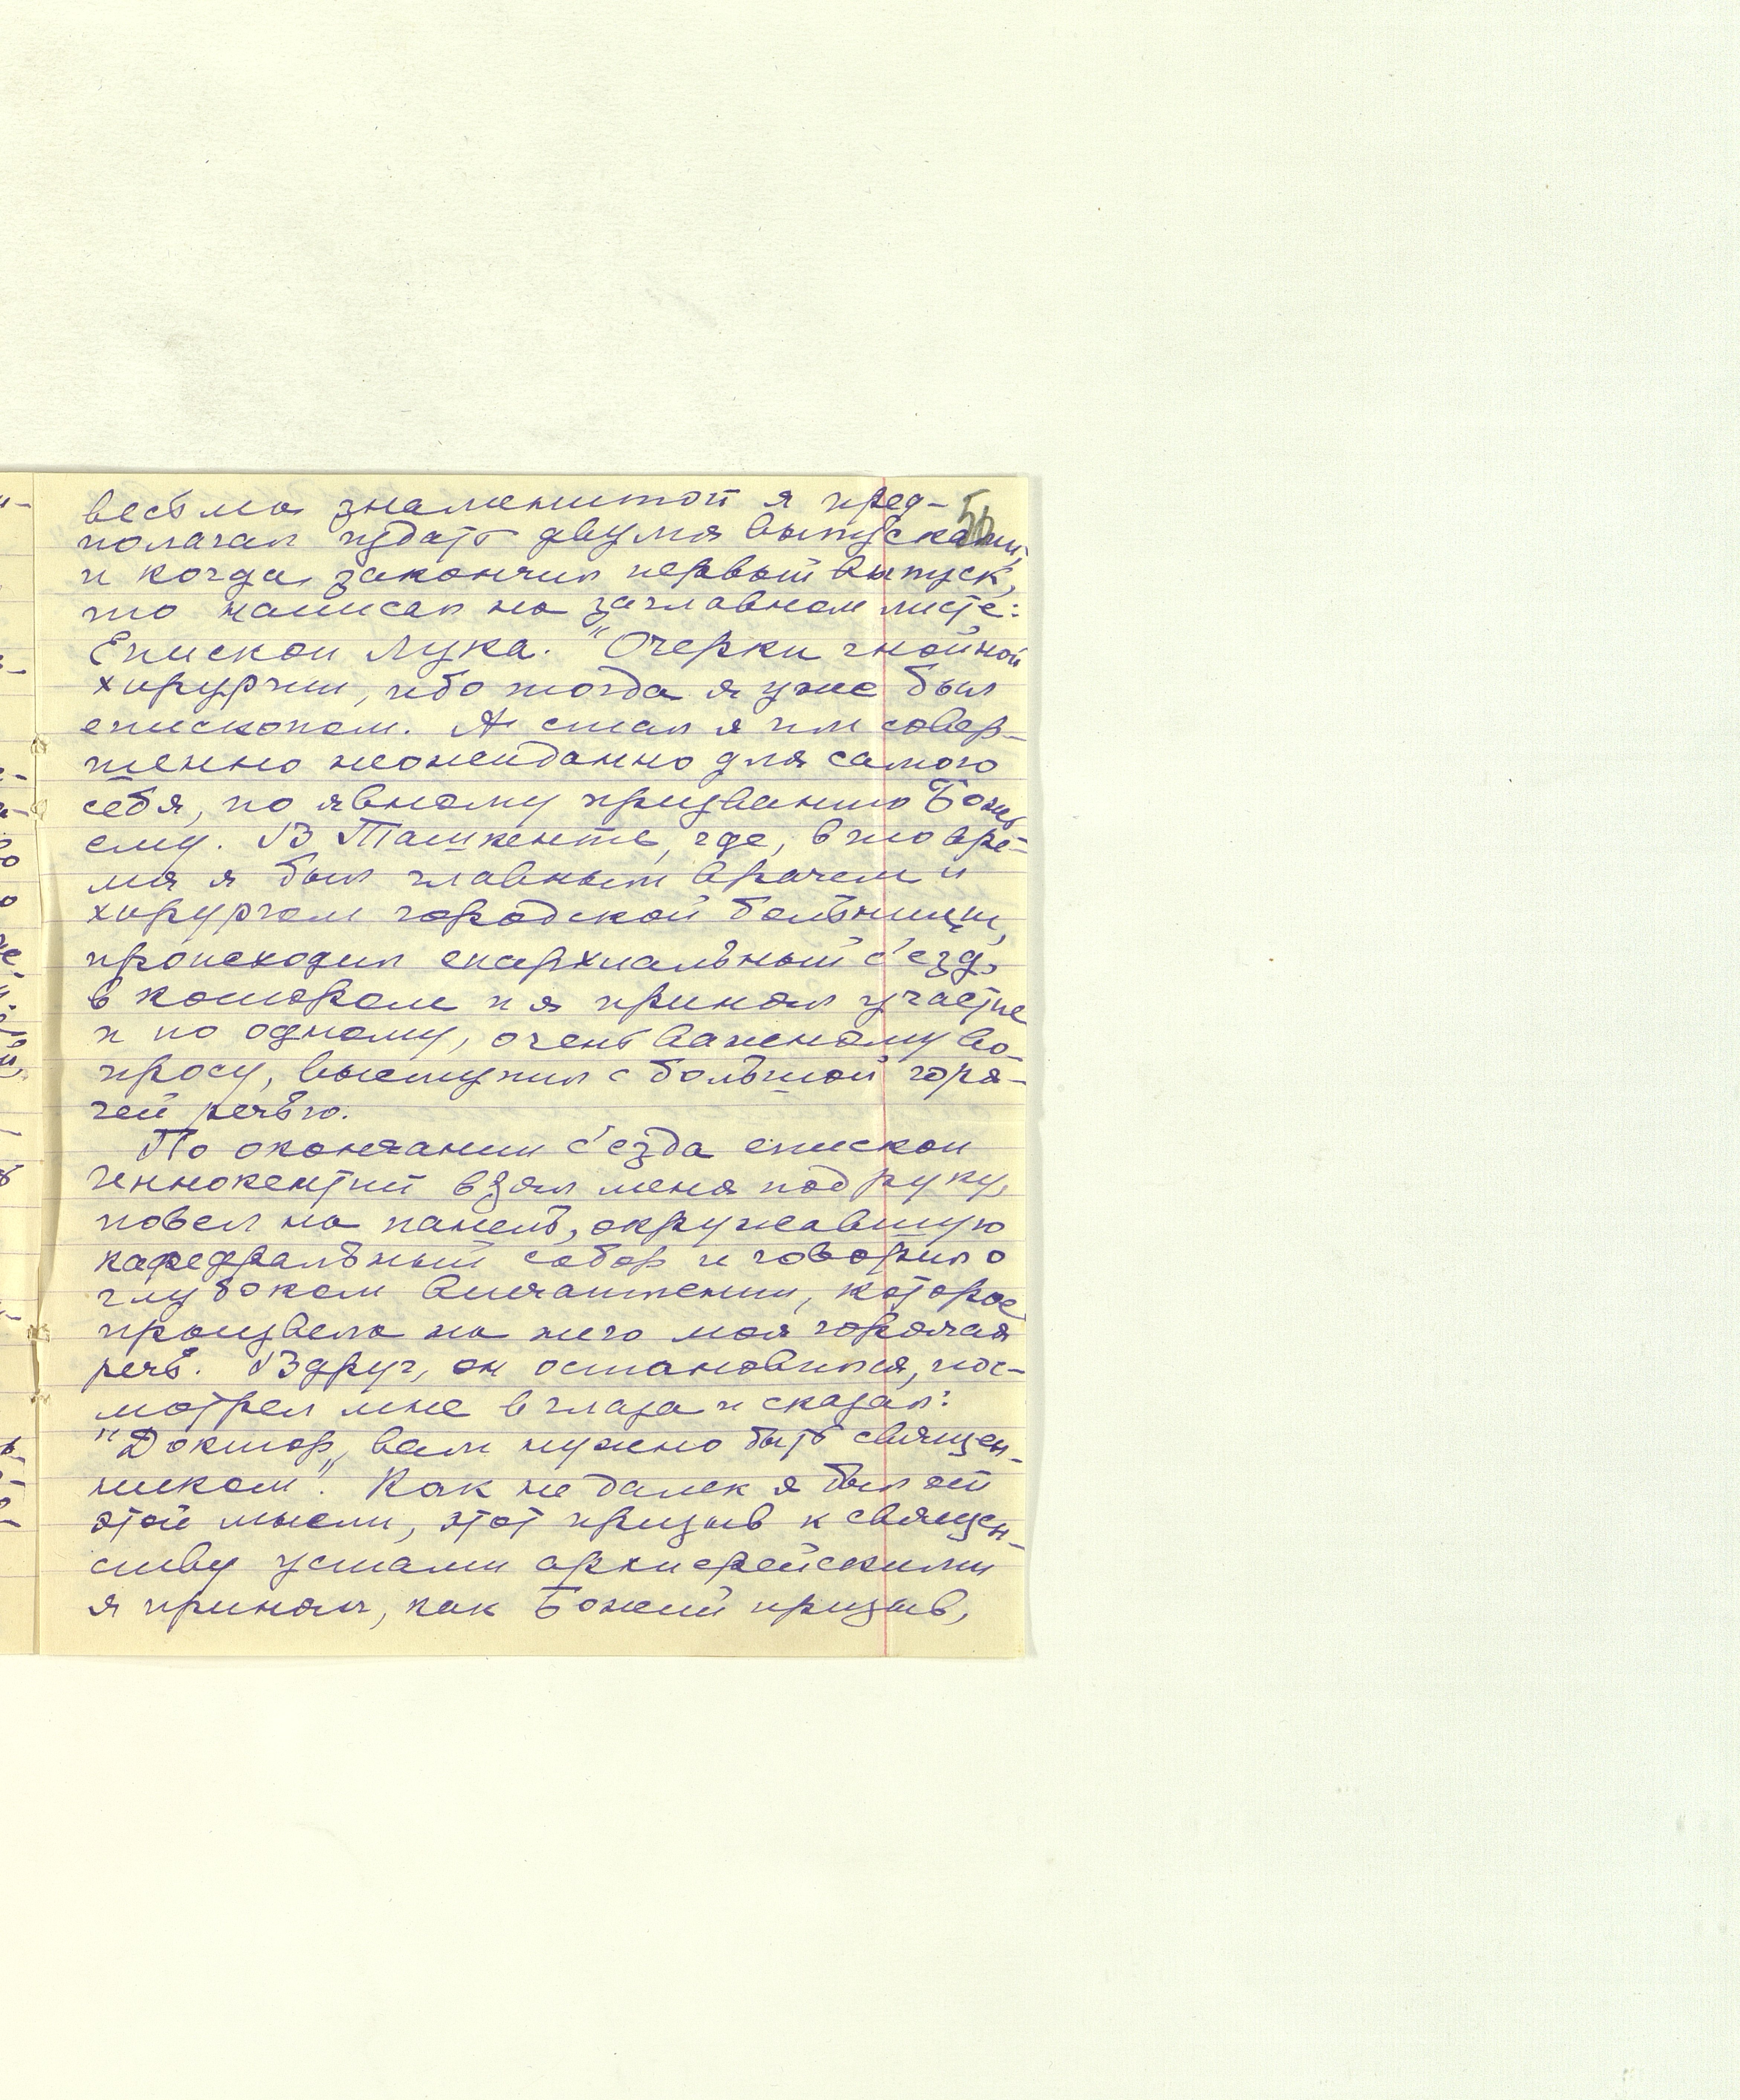 весьма знаменитой я пред-
полагал издать двумя выпусками,
и когда закончил первый выпуск,
то написал на заглавном листе:
Епископ Лука. "Очерки гнойной
хирургии, ибо тогда я уже был
епископом. А стал я им совер-
шенно неожиданно для самого
себя, по явному призванию Божь
ему. В Ташкенте, где, в то вре-
мя я был главным врачем и
хирургом городской больницы,
происходил епархиальный с'езд,
в котором и я принял участие
и по одному, очень важному во-
просу, выступил с большой горя-
чей речью.
По окончании с'езда епископ
Иннокентий взял меня под руку,
повел на панель, окружавшую
кафедральный собор и говорил о
глубоком впечатлении, которое
произвела на него моя горячая
речь. Вдруг, он остановился, пос-
мотрел мне в глаза и сказал:
"Доктор, вам нужно быть священ-
ником". Как не далек я был от
этой мысли, этот призыв к священ-
ству устами архиерейскими
я принял, как Божий призыв,